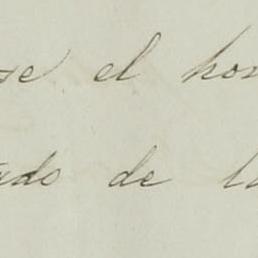 se el hon
ado de la